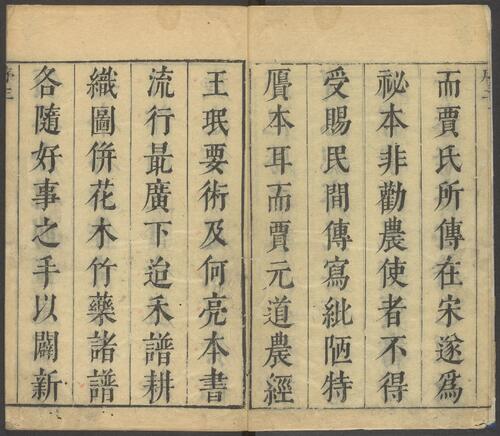 而賈氏所傳在宋遂爲
秘本非勸農使者不得
受賜民間傳寫紕陋特
贋本耳而賈元道農經
王珉要術及何亮本書
流行最廣下迨禾譜耕
織圖倂花木竹藥諸譜
各隨好事之手以闢新
序三